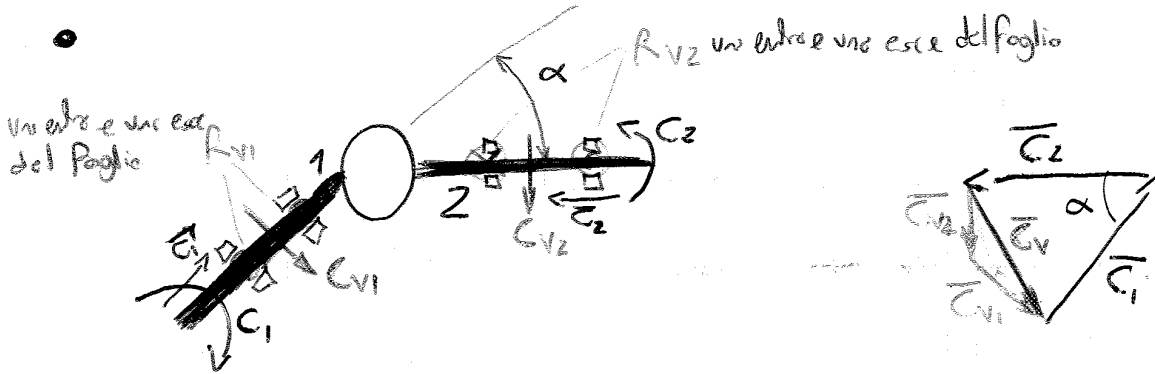 α
R_V2 uno entra e uno esce del foglio
uno entra e uno esce
del foglio
R_V1
1
C_2
2
C̄_2
C_V2
C̄_1
C_V1
C_1
C̄_2
α
C̄_V2
C̄_V
C̄_1
C̄_V1